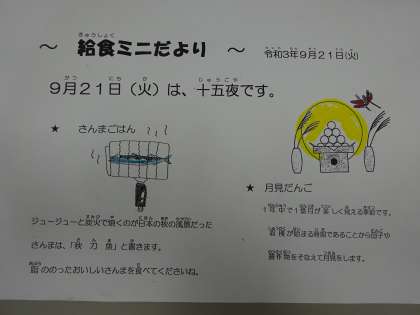 ～ 給食ミニだより ～
令和3年9月21日(火)
9月21日（火）は、十五夜です。
★ さんまごはん
ジュージューと炭火で焼くのが日本の秋の風景だった
さんまは、「秋刀魚」と書きます。
脂ののったおいしいさんまを食べてくださいね。
★ 月見だんご
1年中で1番月が美しく見える季節です。
収穫が始まる時期であることから団子や
農作物をそなえて月見をします。